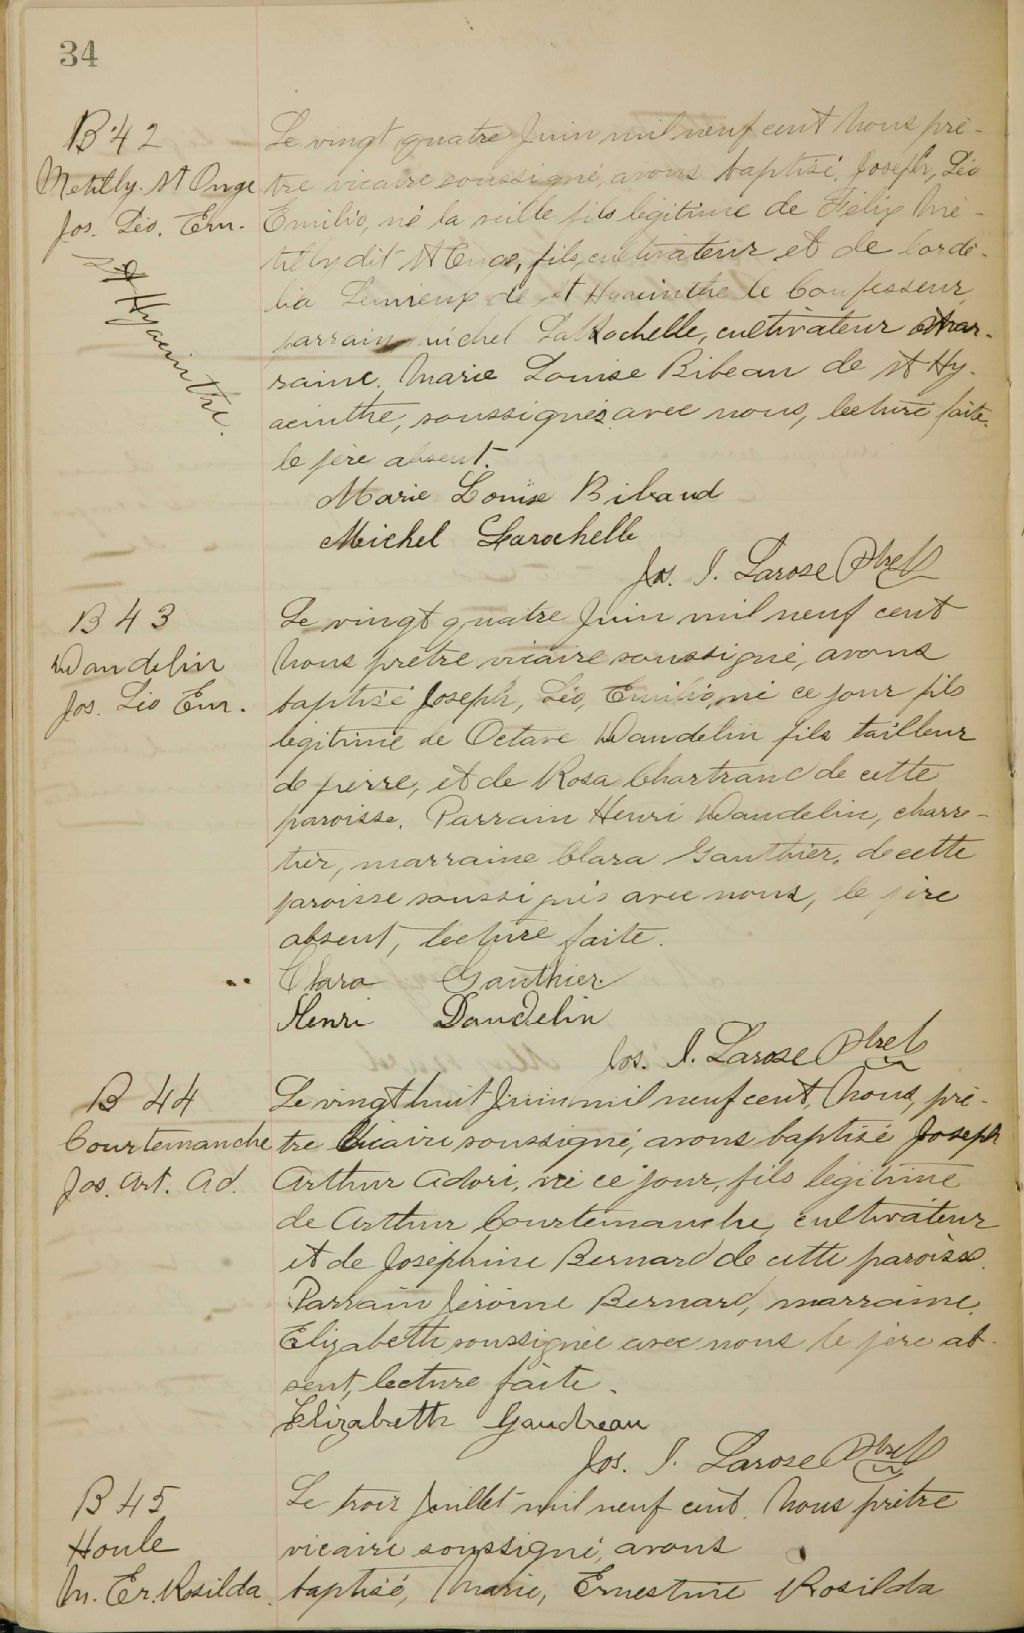 34
B 42
Metilly. St Onge
Jos. Léo. Em.
St Hyacinthe.
Le vingt quatre Juin mil neuf cent Nous prê-
tre vicaire soussigné, avons baptisé, Joseph, Léo
Emilio, né la veille fils légitime de Félix Mé-
tilly dit St Onge, fils, cultivateur et de Cordé-
lia Lemieux de St Hyacinthe le Confesseur
parrain michel LaRochelle, cultivateur mar-
raine. Marie Louise Bibeau de St Hy-
acinthe, soussignés avec nous, lecture faite.
le père absent.
Marie Louise Bibaud
Michel Larochelle
Jos. I. Larose Ptre
B 43
Dandelin
Jos. Léo Em.
Le vingt quatre Juin mil neuf cent
Nous prêtre vicaire soussigné, avons
baptisé Joseph, Léo, Emilio, né ce jour fils
légitime de Octave Dandelin fils tailleur
de pierre, et de Rosa Chartrand de cette
paroisse. Parrain Henri Dandelin, charre-
tier, marraine Clara Gauthier. de cette
paroisse soussignés avec nous, le père
absent, lecture faite.
Clara Gauthier.
Henri Dandelin
Jos. I. Larose Ptre
B 44
Courtemanche
Jos. Art. Ad.
Le vingt huit Juin mil neuf cent, Nous, prê-
tre Vicaire soussigné, avons baptisé Joseph
Arthur Adori, né ce jour, fils légitime
de Arthur Courtemanche, cultivateur
et de Joséphine Bernard de cette paroisse.
Parrain Jérôme Bernard, marraine.
Elizabeth soussignée avec nous le père ab-
sent, lecture faite.
Elizabeth Gaudreau
Jos. I. Larose Ptre
B 45
Houle
M. Er. Rosilda.
Le trois Juillet mil neuf cent. Nous prêtre
vicaire soussigné, avons
baptisé, Marie, Ernestine Rosilda